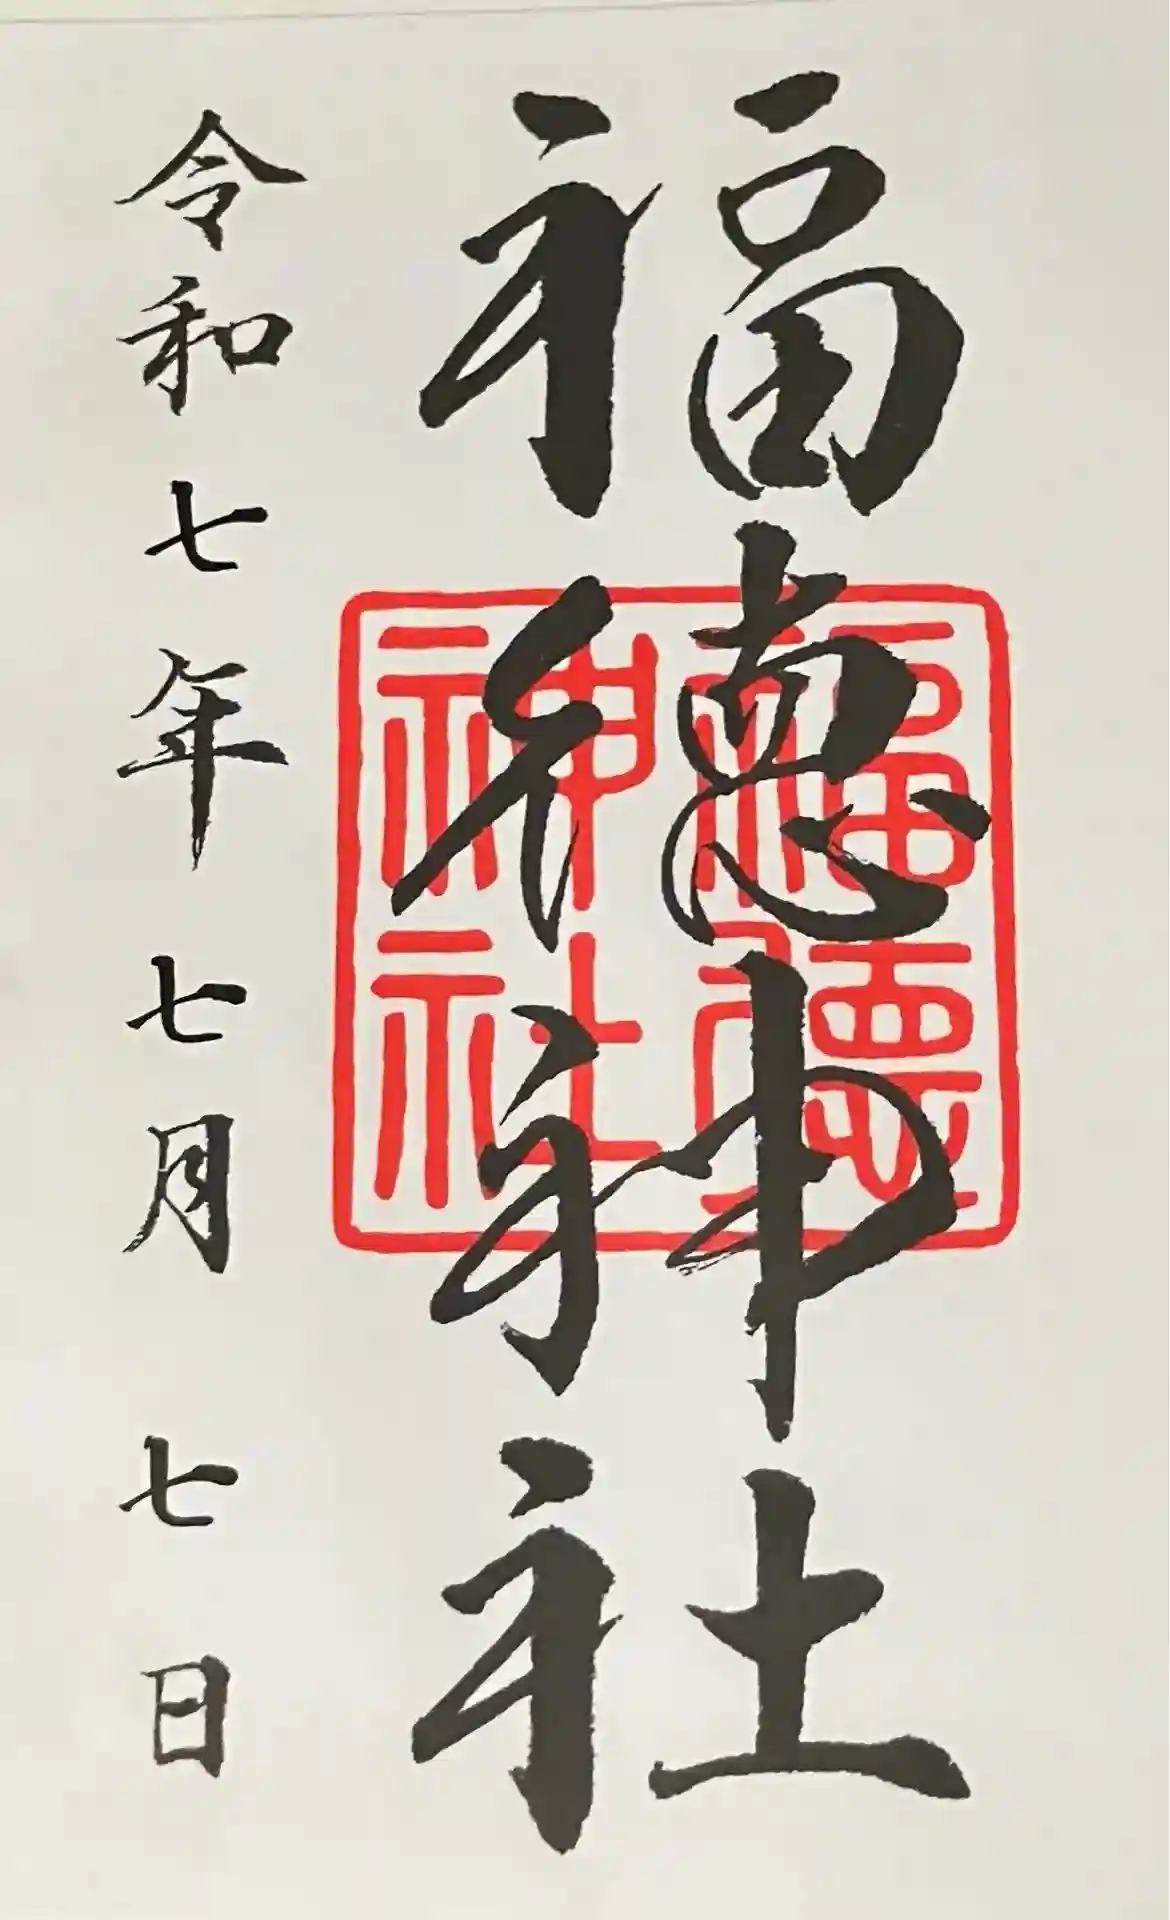 福徳神社
福徳
神社
令和七年七月七日